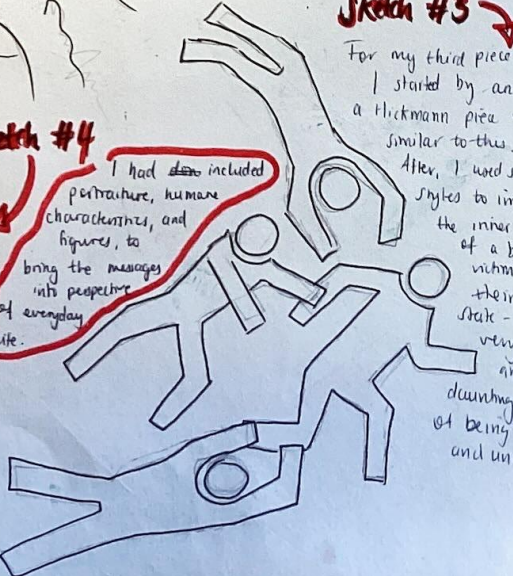 Sketch #3
For my third piece
I started by an
a Hickmann
similar to this.
After, I used
styles to
the inner
of a
victim
their
state -
daunting
of being
and un
etch #4
I had included
portraiture, humane
characteristics, and
figures, to
bring the messages
into perspective
of everyday
life.